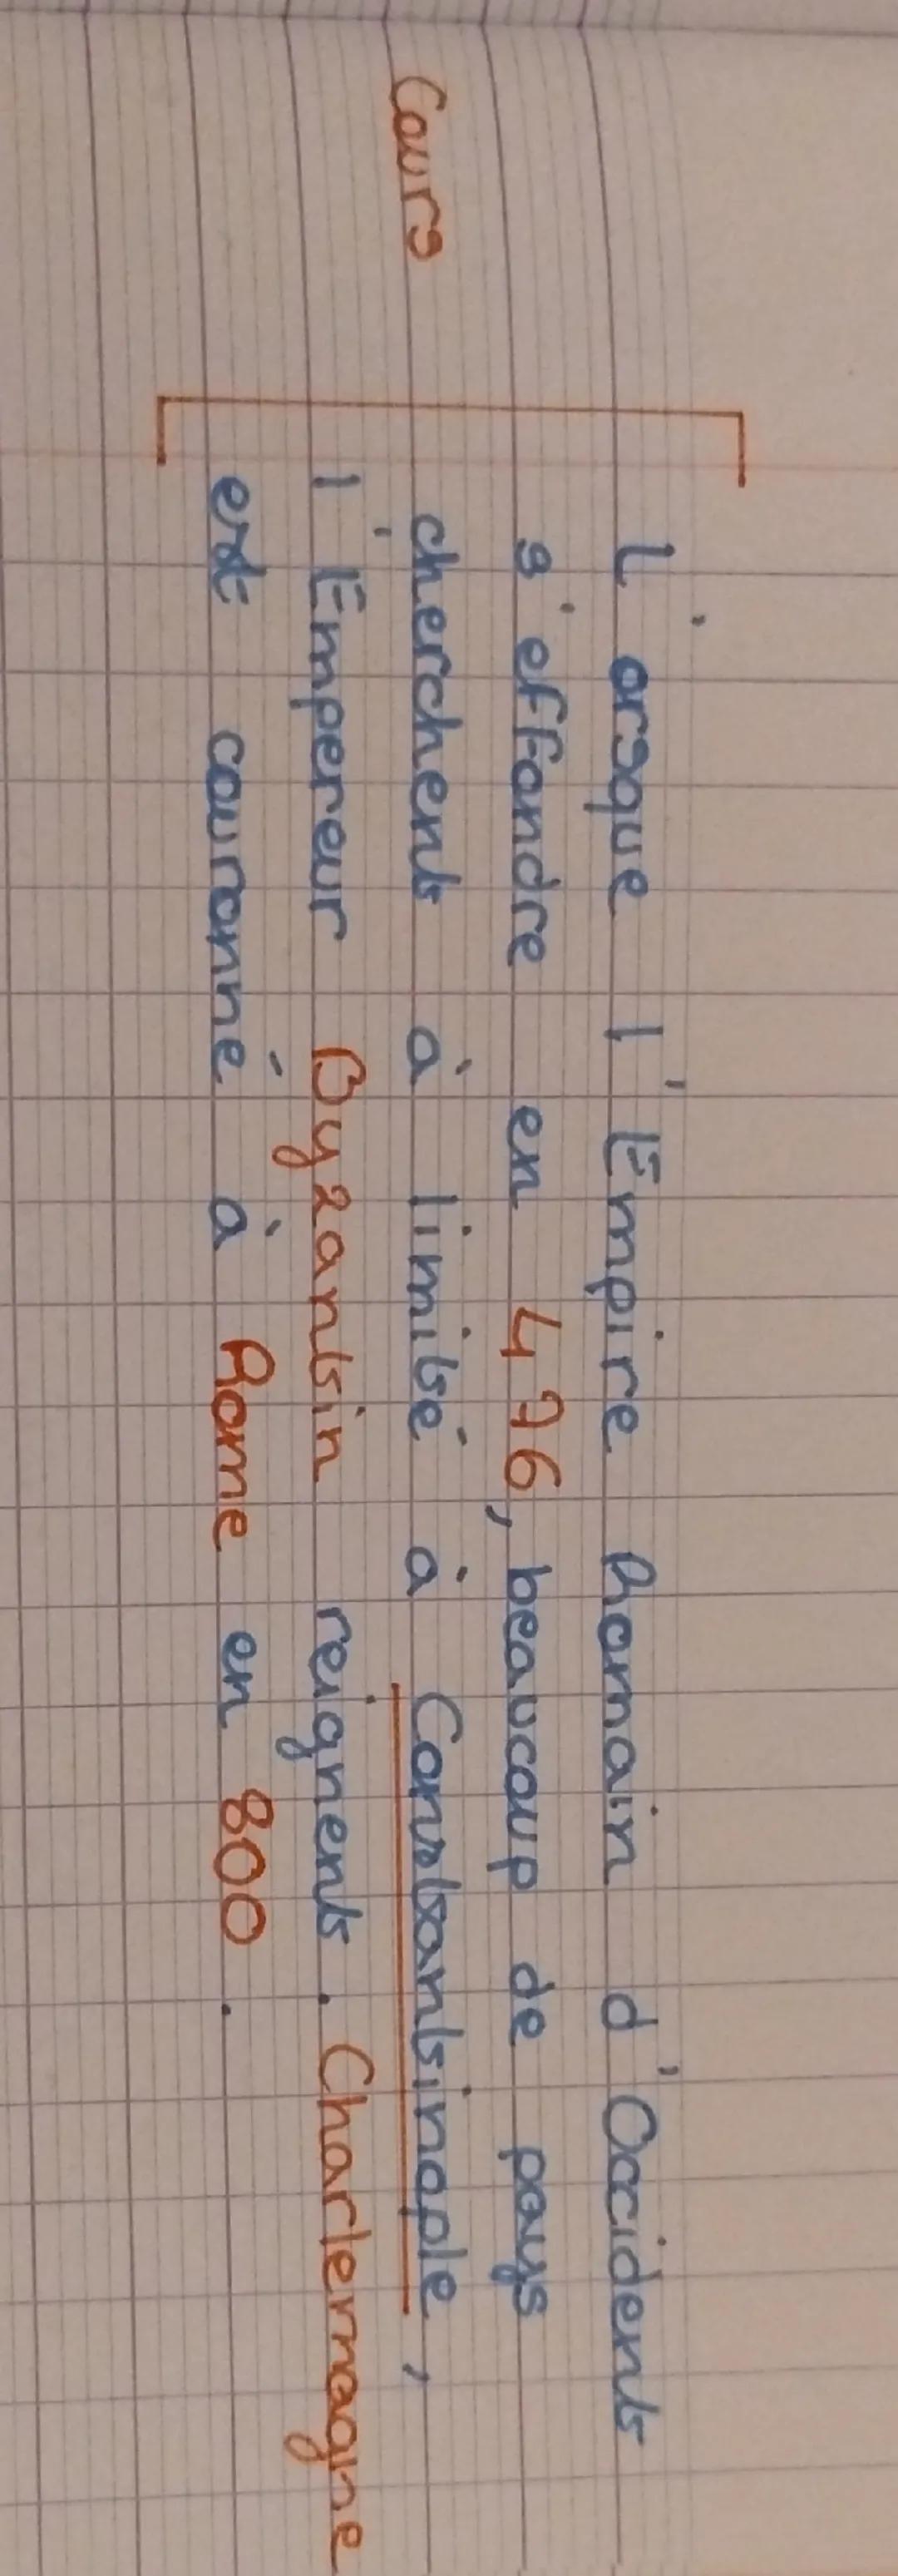 Cours
L'orsque l'Empire Romain d'Occident
s'effondre en 476, beaucoup de pays
cherchent à limité à Constantinople,
l'Empereur Byzantin reignent. Charlemagne
est couronné à Rome en 800.